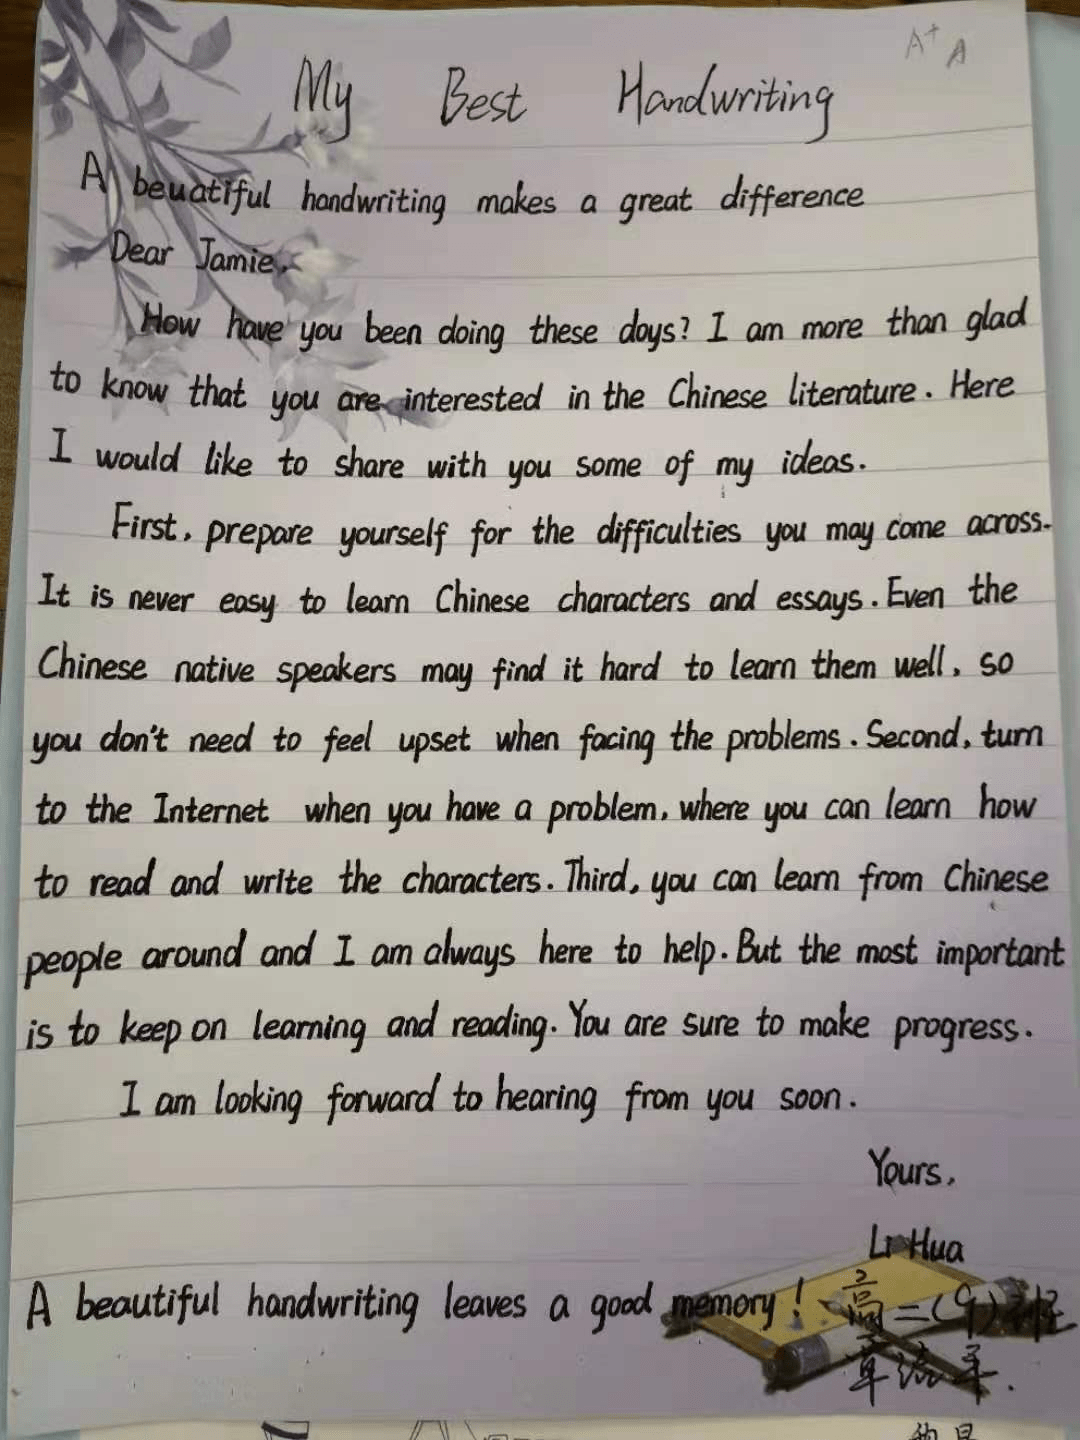 A+ A
My Best Handwriting
A beuatiful handwriting makes a great difference
Dear Jamie,
How have you been doing these days? I am more than glad
to know that you are interested in the Chinese literature. Here
I would like to share with you some of my ideas.
First, prepare yourself for the difficulties you may come across.
It is never easy to learn Chinese characters and essays. Even the
Chinese native speakers may find it hard to learn them well, so
you don't need to feel upset when facing the problems. Second, turn
to the Internet when you have a problem, where you can learn how
to read and write the characters. Third, you can learn from Chinese
people around and I am always here to help. But the most important
is to keep on learning and reading. You are sure to make progress.
I am looking forward to hearing from you soon.
Yours,
Li Hua
A beautiful handwriting leaves a good memory!
高二(9)